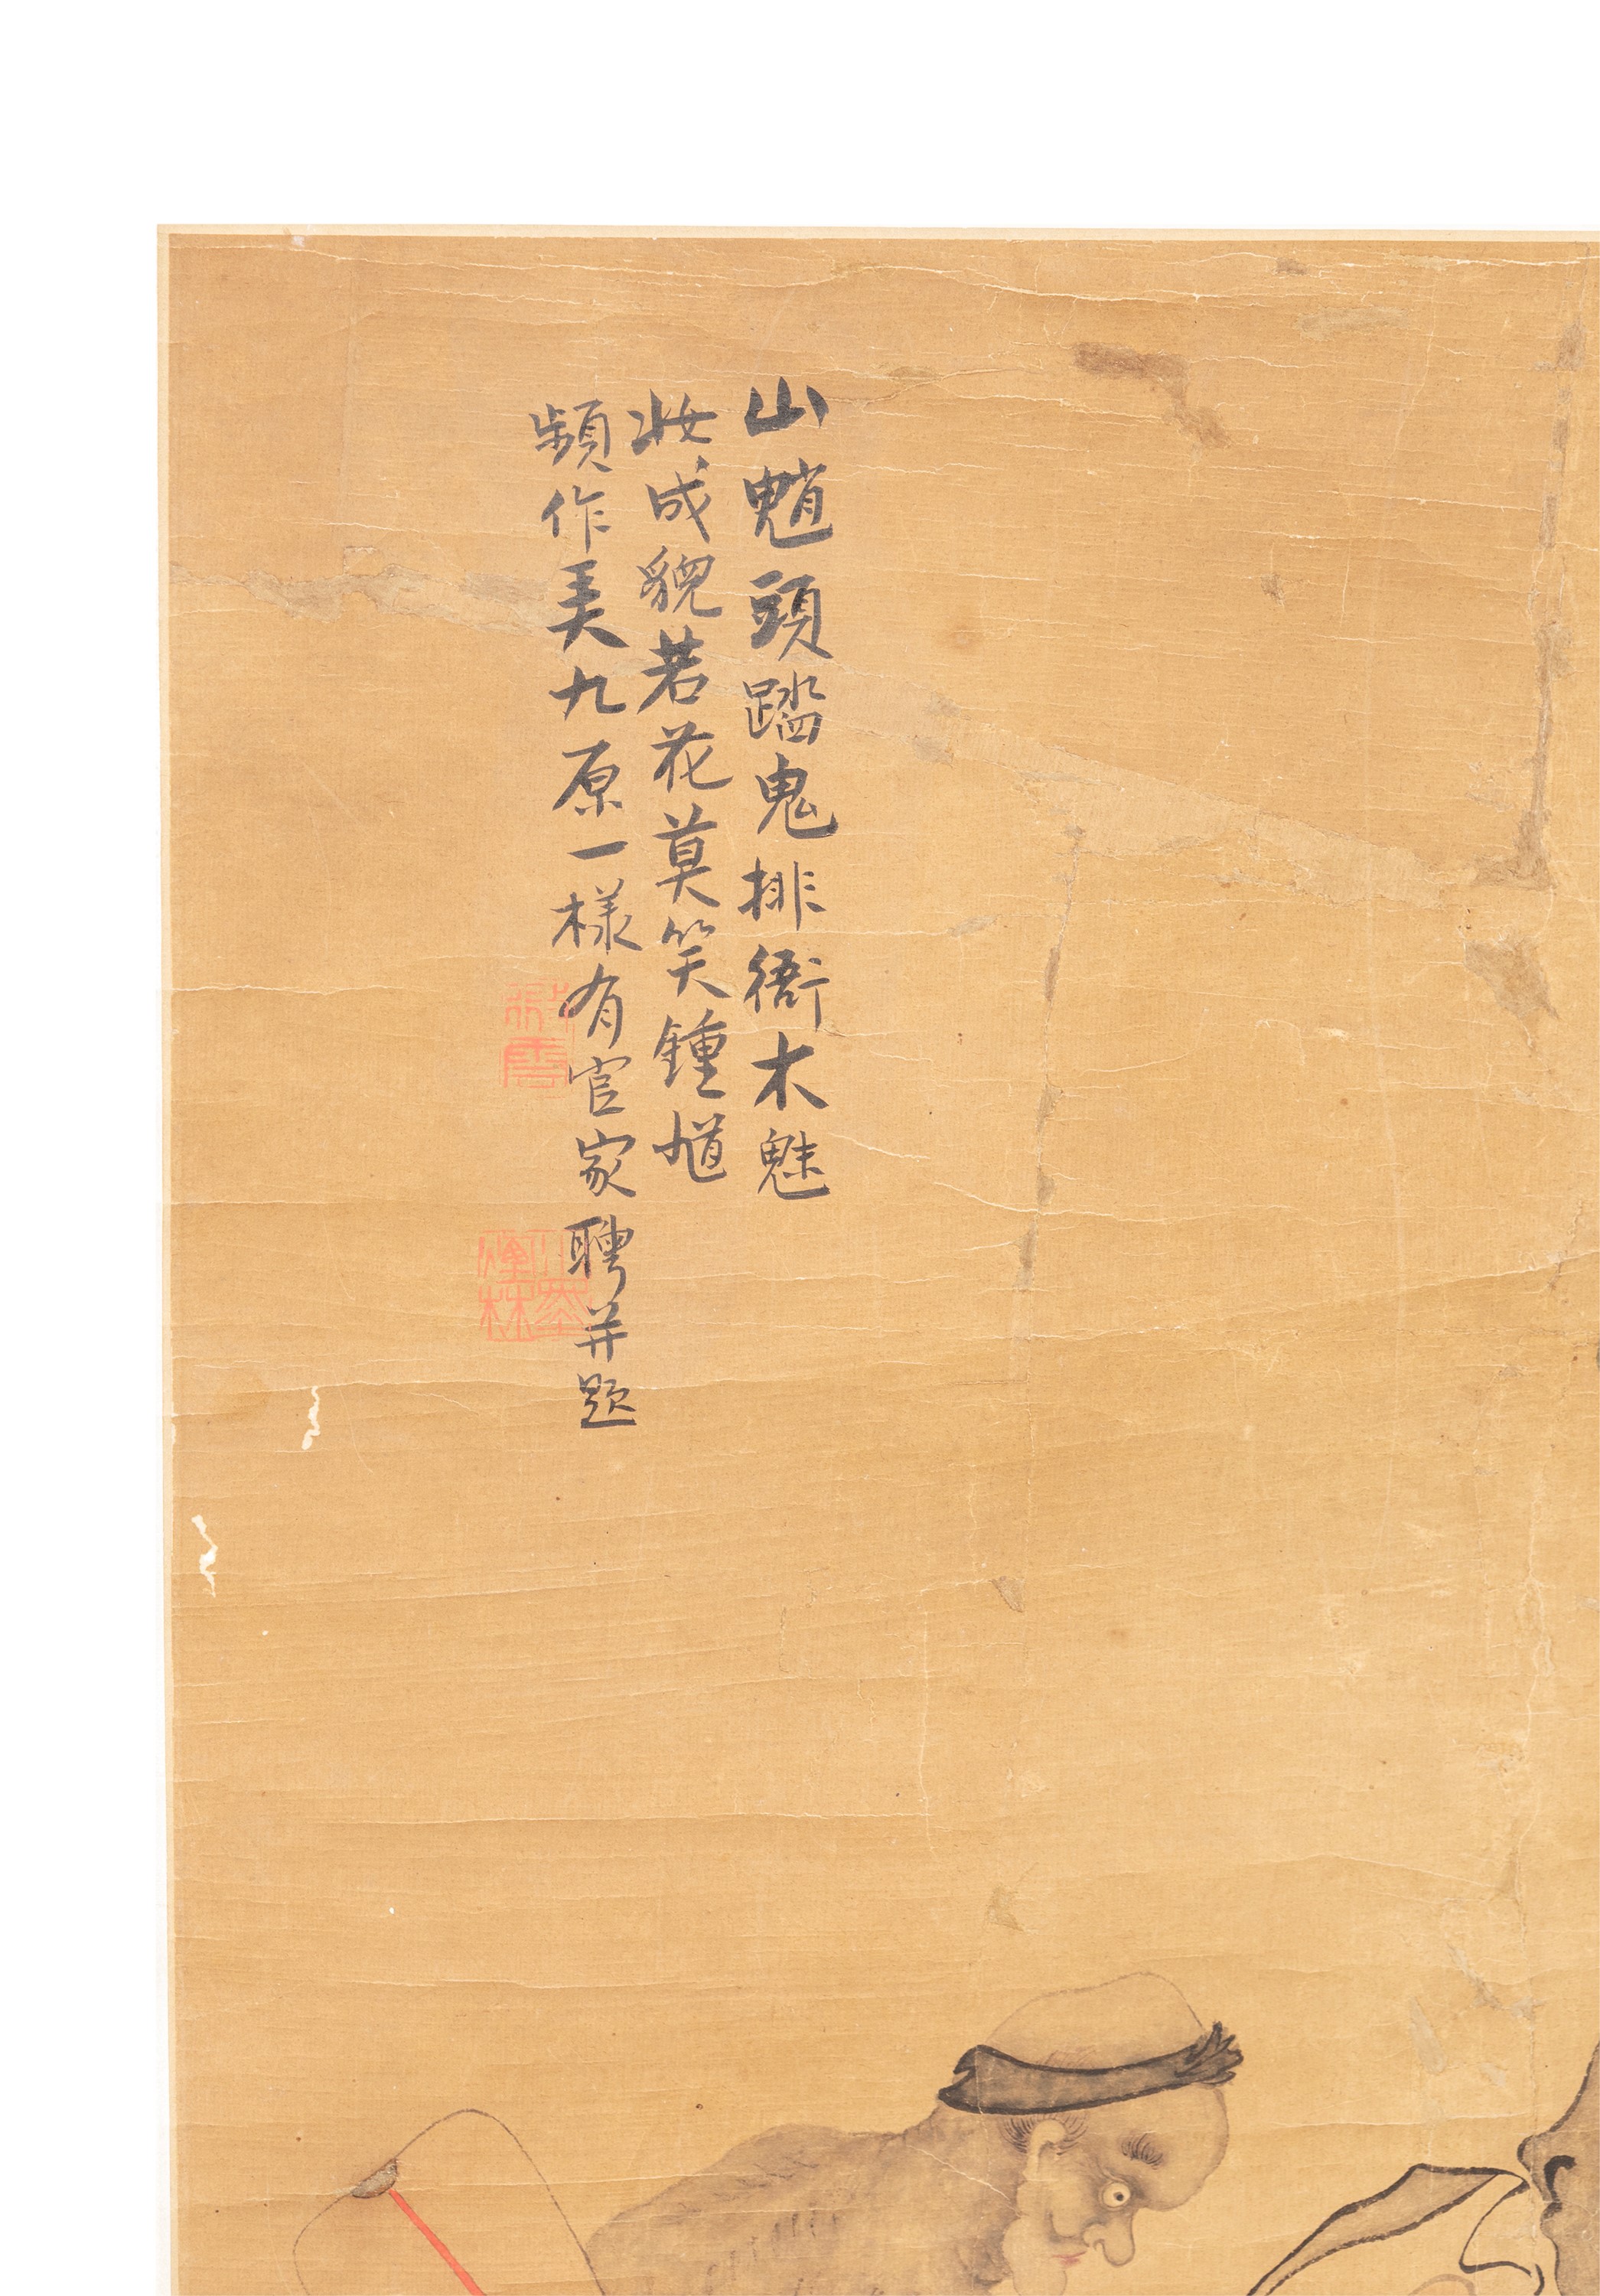 山魈頭踏鬼排衙木魅
妝成貌若花莫笑鍾馗
頻作美九原一樣有官家聘并題